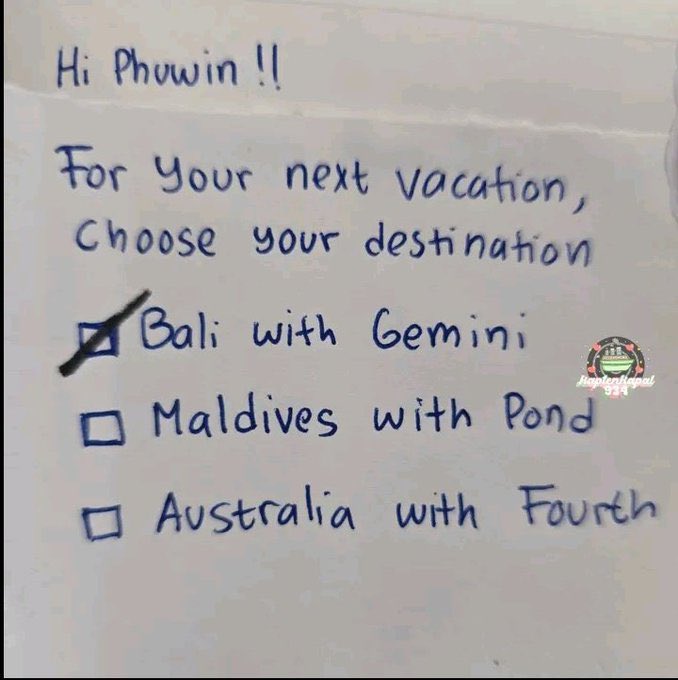 Hi Phuwin !!
For your next vacation,
Choose your destination
Bali with Gemini
Maldives with Pond
Australia with Fourth
KaptenKapal
924